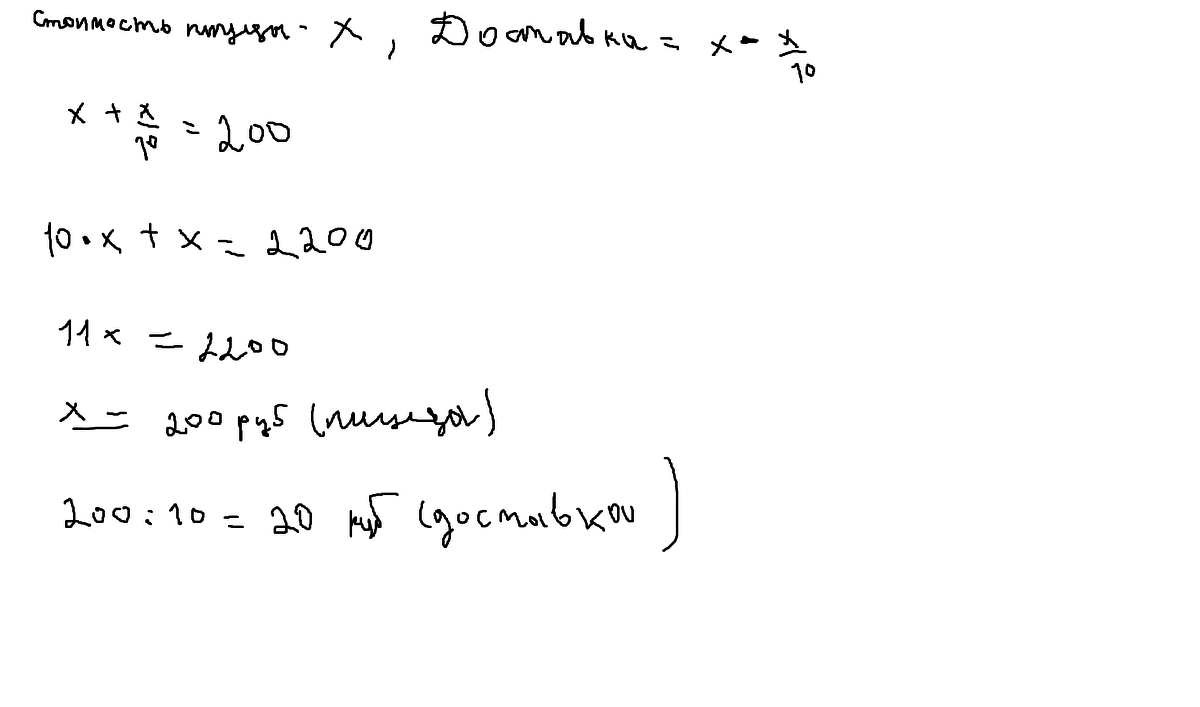 Стоимость пиццы - x, Доставка = x - x/10
x + x/10 = 200
10 · x + x = 2200
11x = 2200
x = 200 руб (пицца)
200 : 10 = 20 руб (доставкаи)